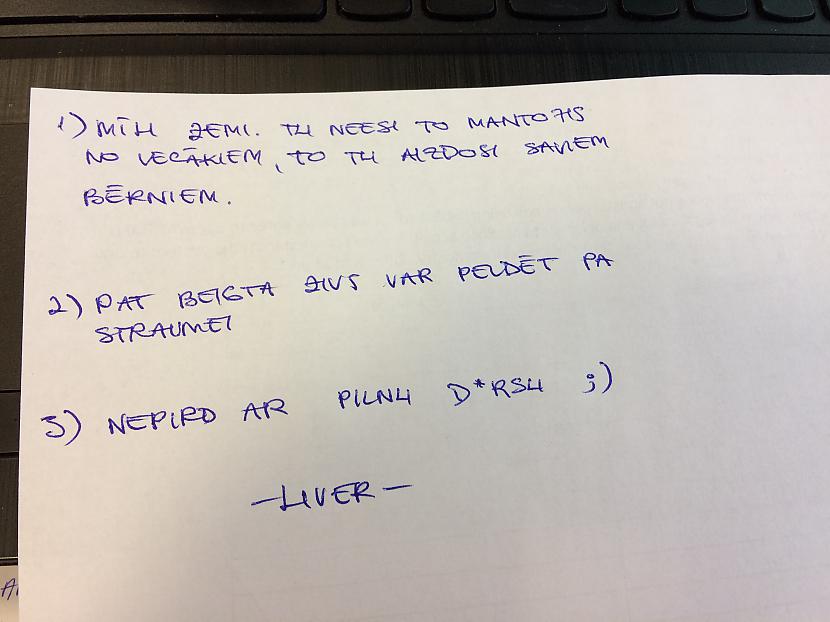 1) MĪLI ZEMI. TU NEESI TO MANTOJIS
NO VECĀKIEM, TO TU AIZDOSI SAVIEM
BĒRNIEM.
2) PAT BEIGTA ZIVS VAR PELDĒT PA
STRAUMEI
3) NEPIRD AR PILNU D*RSU ;)
-LIVER-